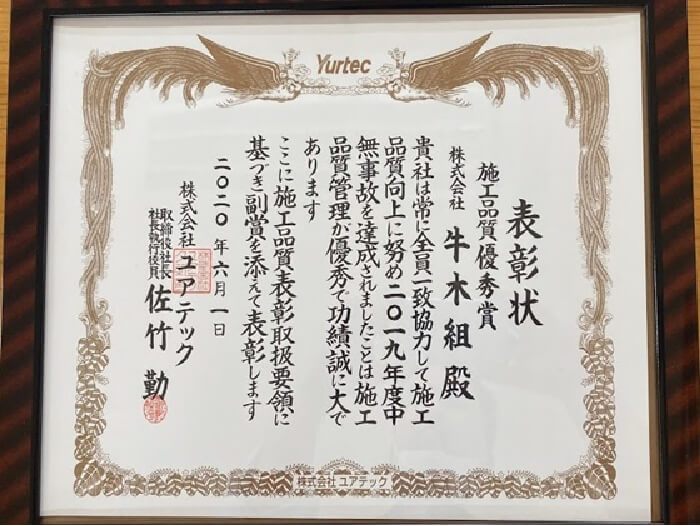 Yurtec
表彰状
施工品質優秀賞
株式会社 牛木組殿
貴社は常に全員一致協力して施工
品質向上に努め二〇一九年度中
無事故を達成されましたことは施工
品質管理が優秀で功績誠に大で
あります
ここに施工品質表彰取扱要領に
基づき副賞を添えて表彰します
二〇二〇年六月一日
株式会社ユアテック
取締役社長
社長執行役員 佐竹 勤
株式会社 ユアテック